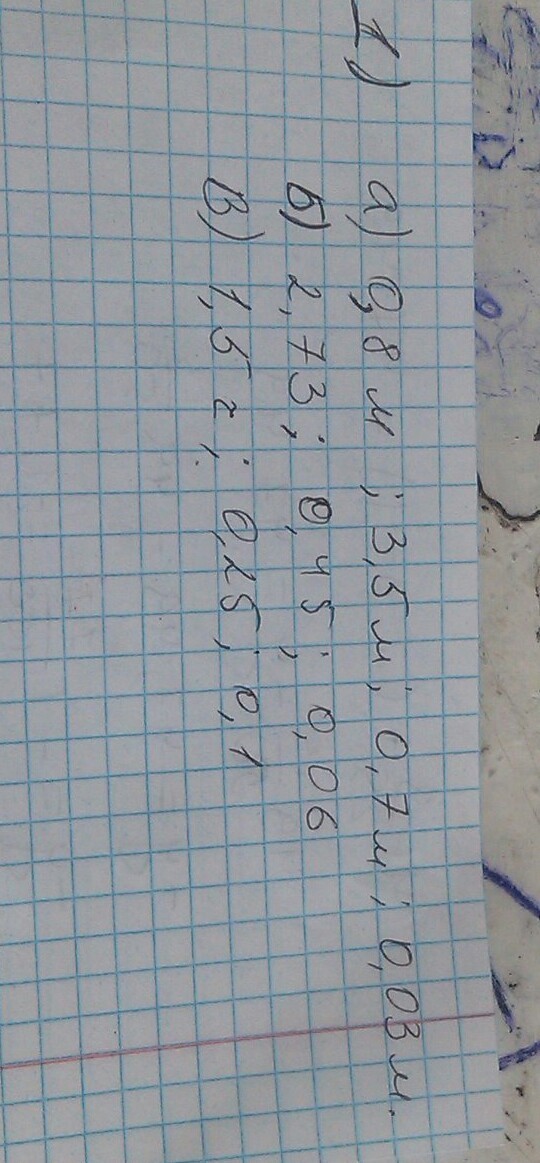 1) а) 0,8 м; 3,5 м; 0,7 м; 0,03 м.
б) 2,73; 0,45; 0,06
в) 1,5 г; 0,25; 0,1